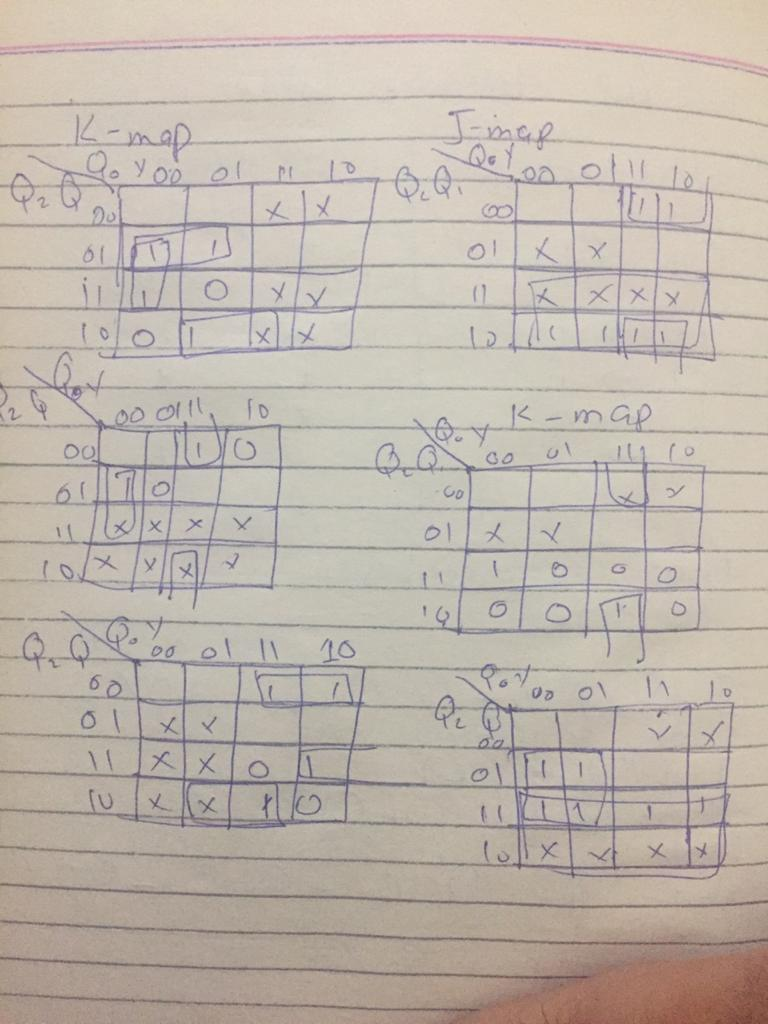 K-map
Q₀ Y 00 01 11 10
Q₂ Q
00 X X
01 1 1
11 1 0 X X
10 0 1 X X
J-map
Q₀Y 00 01 11 10
Q₂Q₁
00 1 1
01 X X
11 X X X X
10 1 1 1 1
Q₀Y
2 Q 00 01 11 10
00 1 0
01 1 0
11 X X X X
10 X X X X
K-map
Q₀ Y 00 01 11 10
Q₂Q₁
00 X X
01 X X
11 1 0 0 0
10 0 0 1 0
Q₀ Y 00 01 11 10
Q₂ Q
00 1 1
01 X X
11 X X 0 1
10 X X 1 0
Q₀Y 00 01 11 10
Q₂ Q
00 X X
01 1 1
11 1 1 1 1
10 X X X X